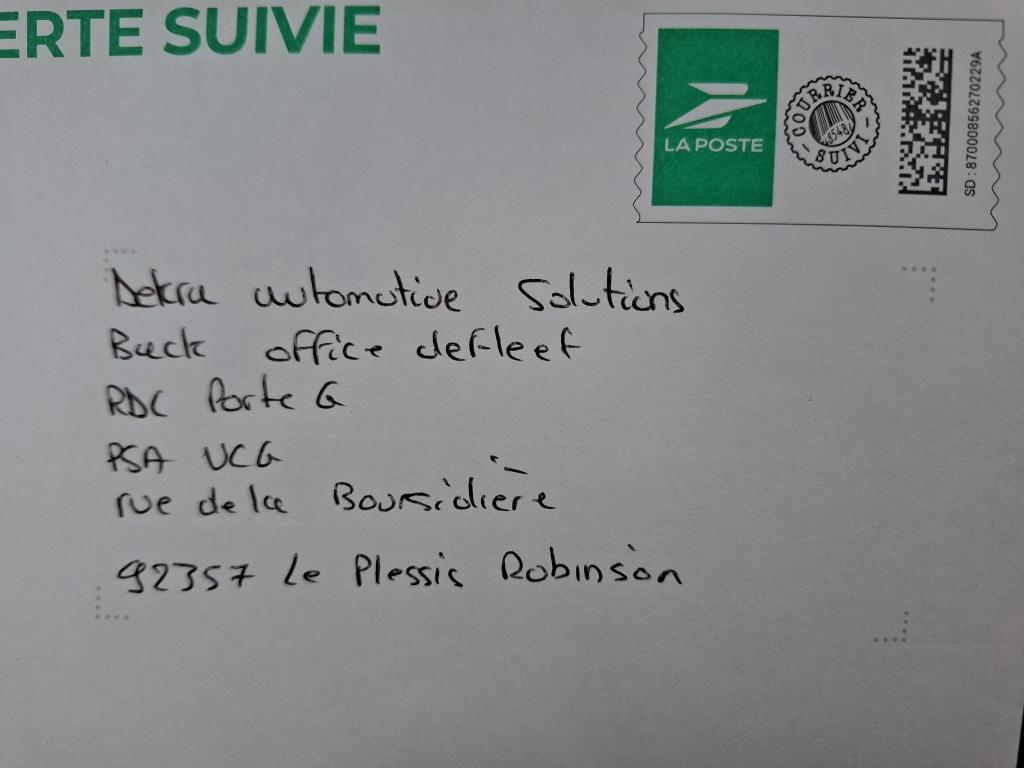 ERTE SUIVIE
LA POSTE
COURRIER
SUIVI
SD : 87000856270229A
Dekra automotive Solutions
Back office defleet
RDC Porte G
PSA UCG
rue de la Boursidière
92357 Le Plessis Robinson